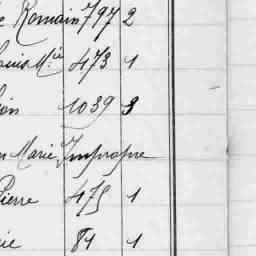 Romain 797 2
Louis Mie 473 1
1039 3
Marie Impropre
Pierre 475 1
84 1